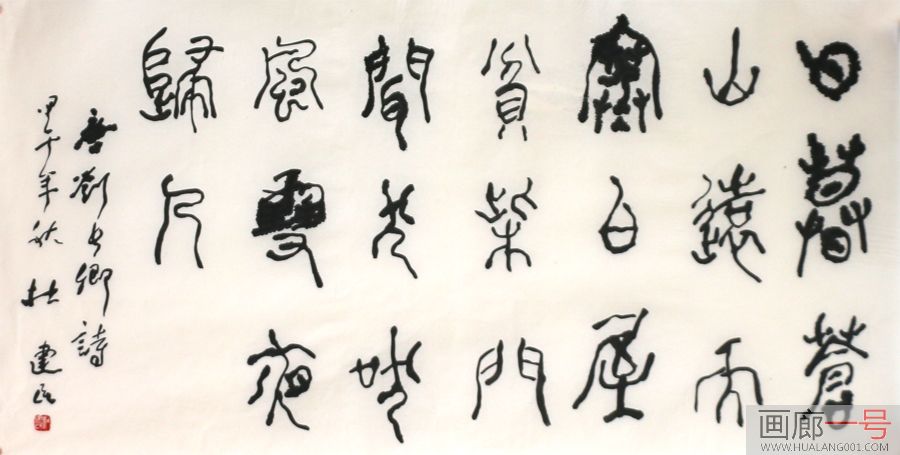 日暮蒼
山遠天
寒白屋
貧柴門
聞犬吠
風雪夜
歸人
唐劉長卿詩
甲午年秋 杜建民
画廊一号
WWW.HUALANG001.COM